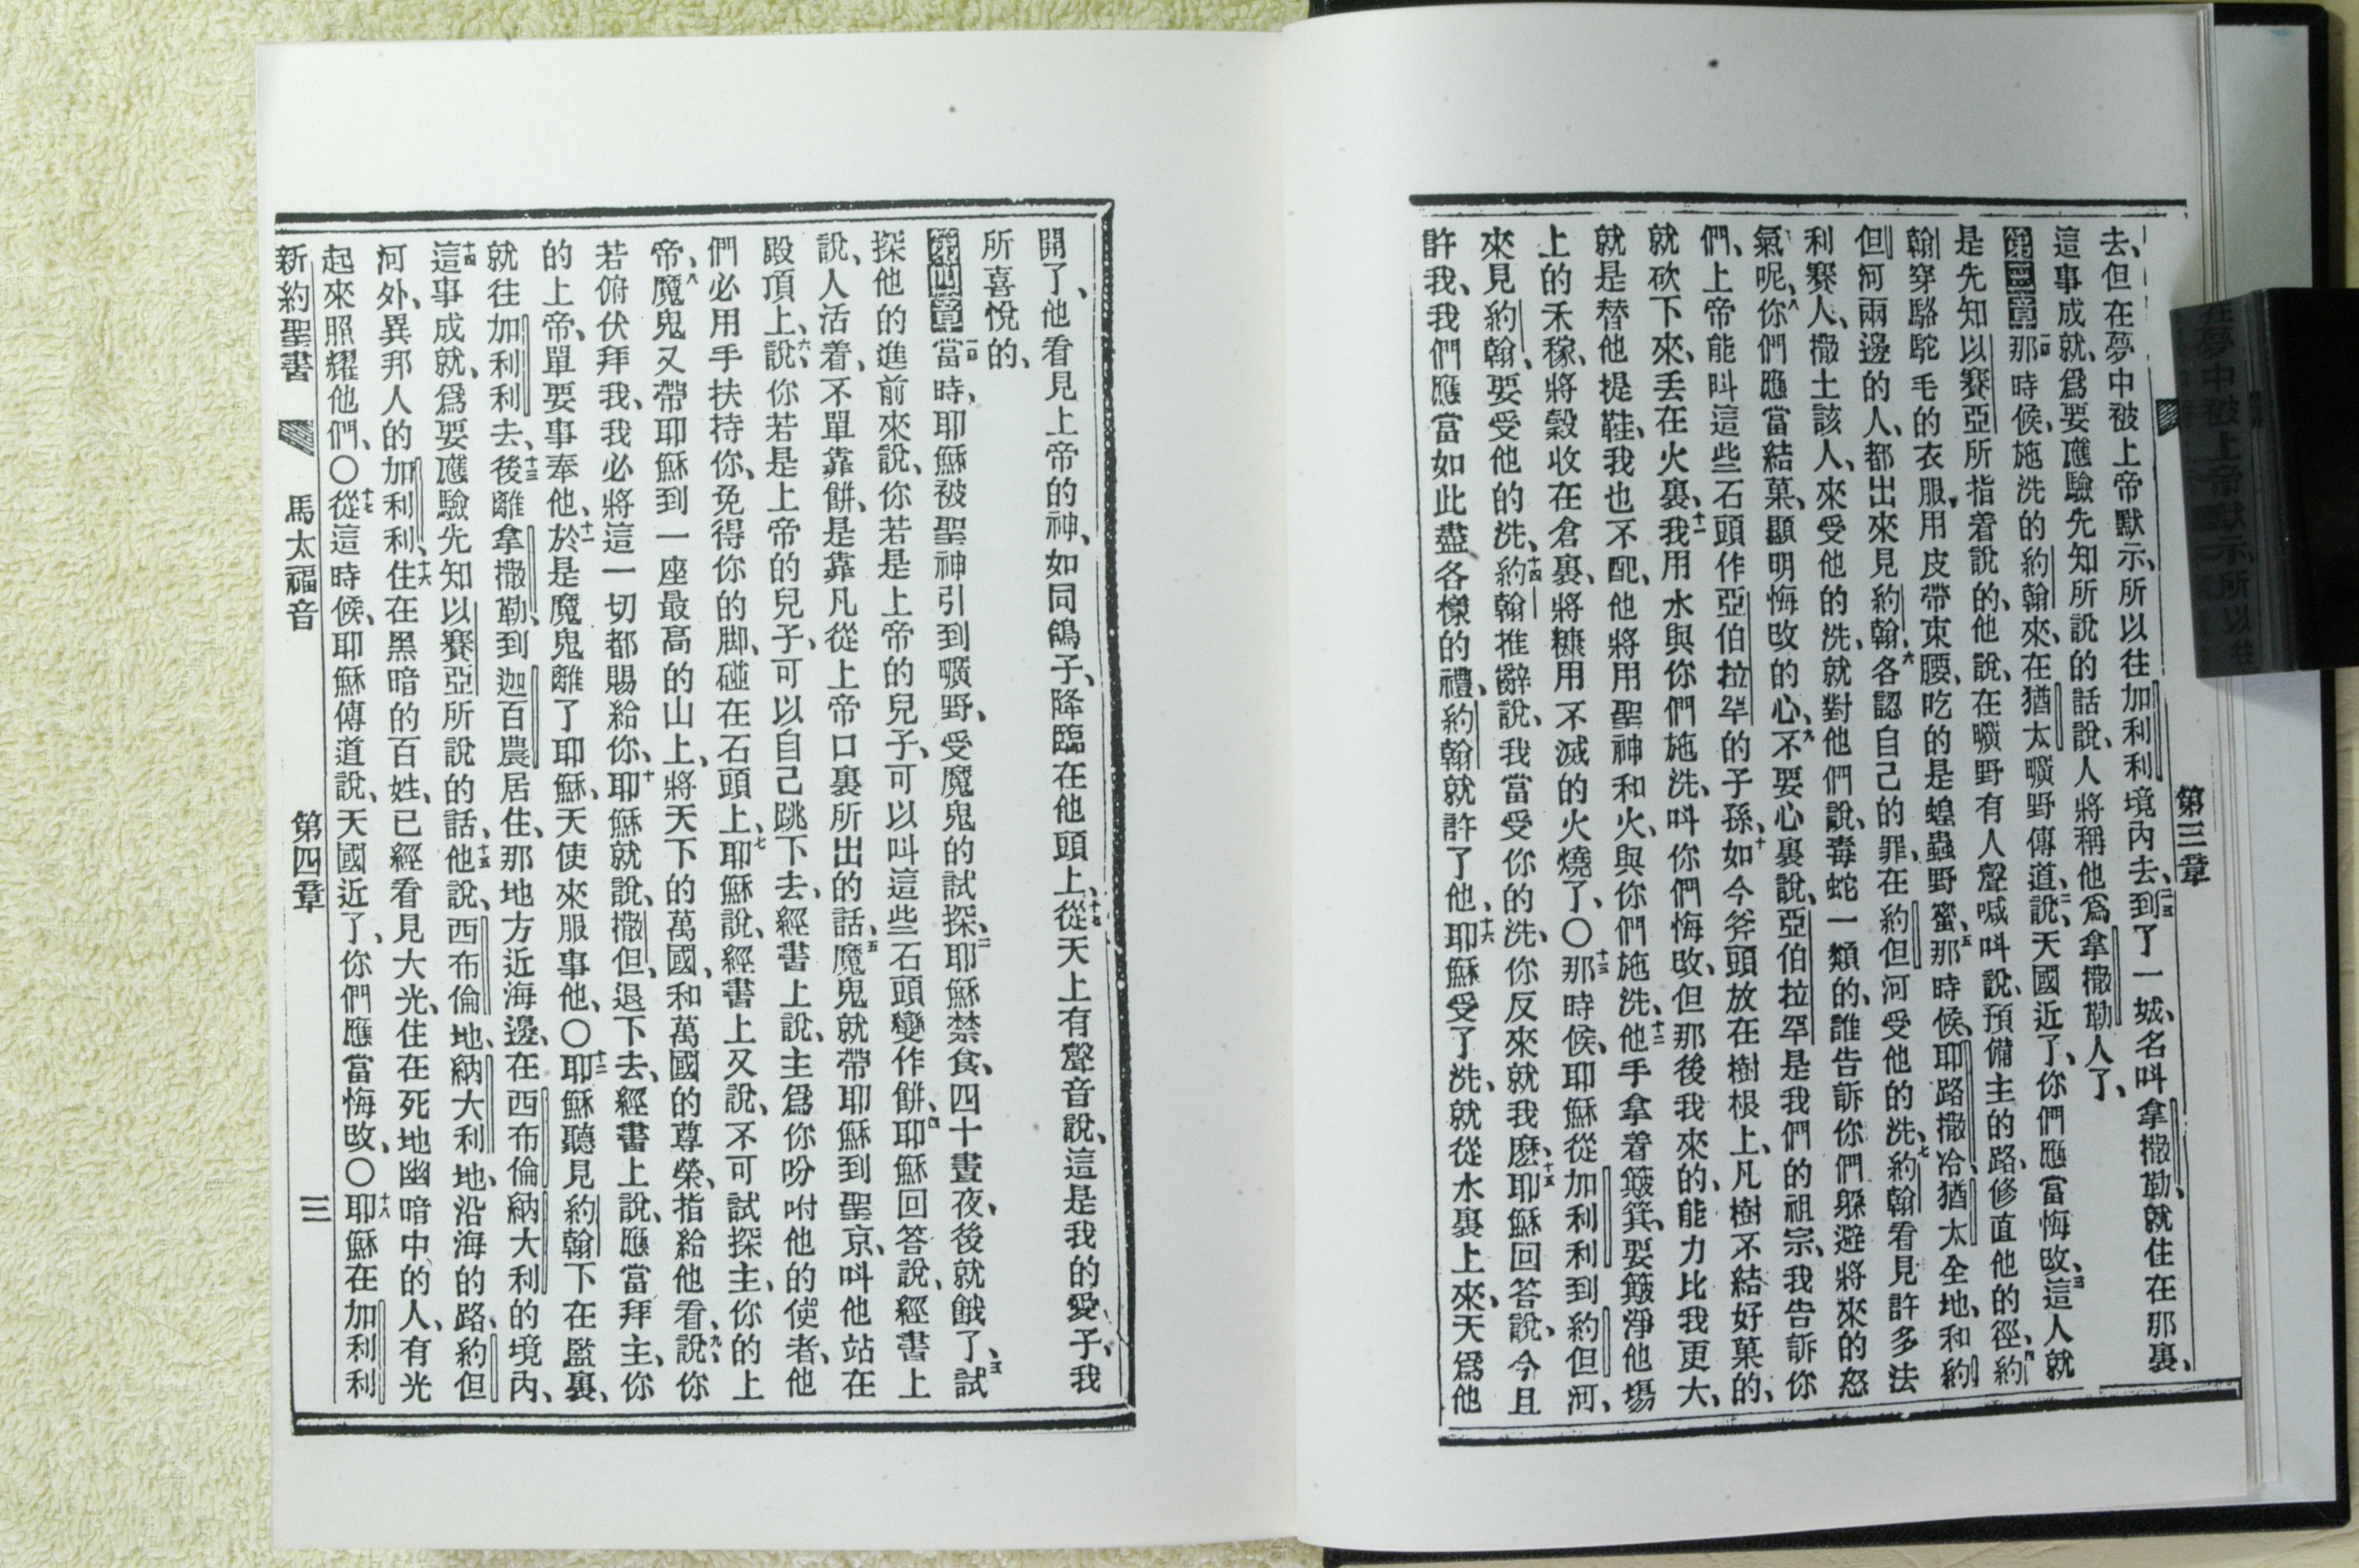 第三章
去、但在夢中被上帝默示、所以往加利利境內去、二三到了一城、名叫拿撒勒、就住在那裏、
這事成就、爲要應驗先知所說的話說、人將稱他爲拿撒勒人了、
第三章一那時候、施洗的約翰來、在猶太曠野傳道、二說、天國近了、你們應當悔改、三這人就
是先知以賽亞所指着說的、他說、在曠野有人聲喊叫說、預備主的路、修直他的徑、四約
翰穿駱駝毛的衣服、用皮帶束腰、吃的是蝗蟲野蜜、五那時候、耶路撒冷、猶太全地、和約
但河兩邊的人、都出來見約翰、六各認自己的罪、在約但河受他的洗、七約翰看見許多法
利賽人、撒土該人、來受他的洗、就對他們說、毒蛇一類的、誰告訴你們躲避將來的怒
氣呢、八你們應當結菓、顯明悔改的心、九不要心裏說、亞伯拉罕是我們的祖宗、我告訴你
們、上帝能叫這些石頭作亞伯拉罕的子孫、十如今斧頭放在樹根上、凡樹不結好菓的、
就砍下來、丟在火裏、十一我用水與你們施洗、叫你們悔改、但那後我來的、能力比我更大、
就是替他提鞋、我也不配、他將用聖神和火、與你們施洗、十二他手拿着簸箕、要簸淨他場
上的禾稼、將穀收在倉裏、將糠用不滅的火燒了、〇十三那時候、耶穌從加利利到約但河、
來見約翰、要受他的洗、十四約翰推辭說、我當受你的洗、你反來就我麽、十五耶穌回答說、今且
許我、我們應當如此盡各樣的禮、約翰就許了他、十六耶穌受了洗、就從水裏上來、天爲他
開了、他看見上帝的神、如同鴿子、降臨在他頭上、十七從天上有聲音說、這是我的愛子、我
所喜悅的、
第四章一當時、耶穌被聖神引到曠野、受魔鬼的試探、二耶穌禁食、四十晝夜、後就餓了、三試
探他的進前來說、你若是上帝的兒子、可以叫這些石頭變作餅、四耶穌回答說、經書上
說、人活着、不單靠餅、是靠凡從上帝口裏所出的話、五魔鬼就帶耶穌到聖京、叫他站在
殿頂上、六說、你若是上帝的兒子、可以自己跳下去、經書上說、主爲你吩咐他的使者、他
們必用手扶持你、免得你的脚、碰在石頭上、七耶穌說、經書上又說、不可試探主、你的上
帝、八魔鬼又帶耶穌到一座最高的山上、將天下的萬國、和萬國的尊榮、指給他看、九說、你
若俯伏拜我、我必將這一切都賜給你、十耶穌就說、撒但、退下去、經書上說、應當拜主、你
的上帝、單要事奉他、十一於是魔鬼離了耶穌、天使來服事他、〇十二耶穌聽見約翰下在監裏、
就往加利利去、十三後離拿撒勒、到迦百農居住、那地方近海邊、在西布倫納大利的境內、
十四這事成就、爲要應驗先知以賽亞所說的話、十五他說、西布倫地、納大利地、沿海的路、約但
河外、異邦人的加利利、十六住在黑暗的百姓、已經看見大光、住在死地幽暗中的人、有光
起來照耀他們、〇十七從這時候、耶穌傳道說、天國近了、你們應當悔改、〇十八耶穌在加利利
新約聖書 馬太福音 第四章 三